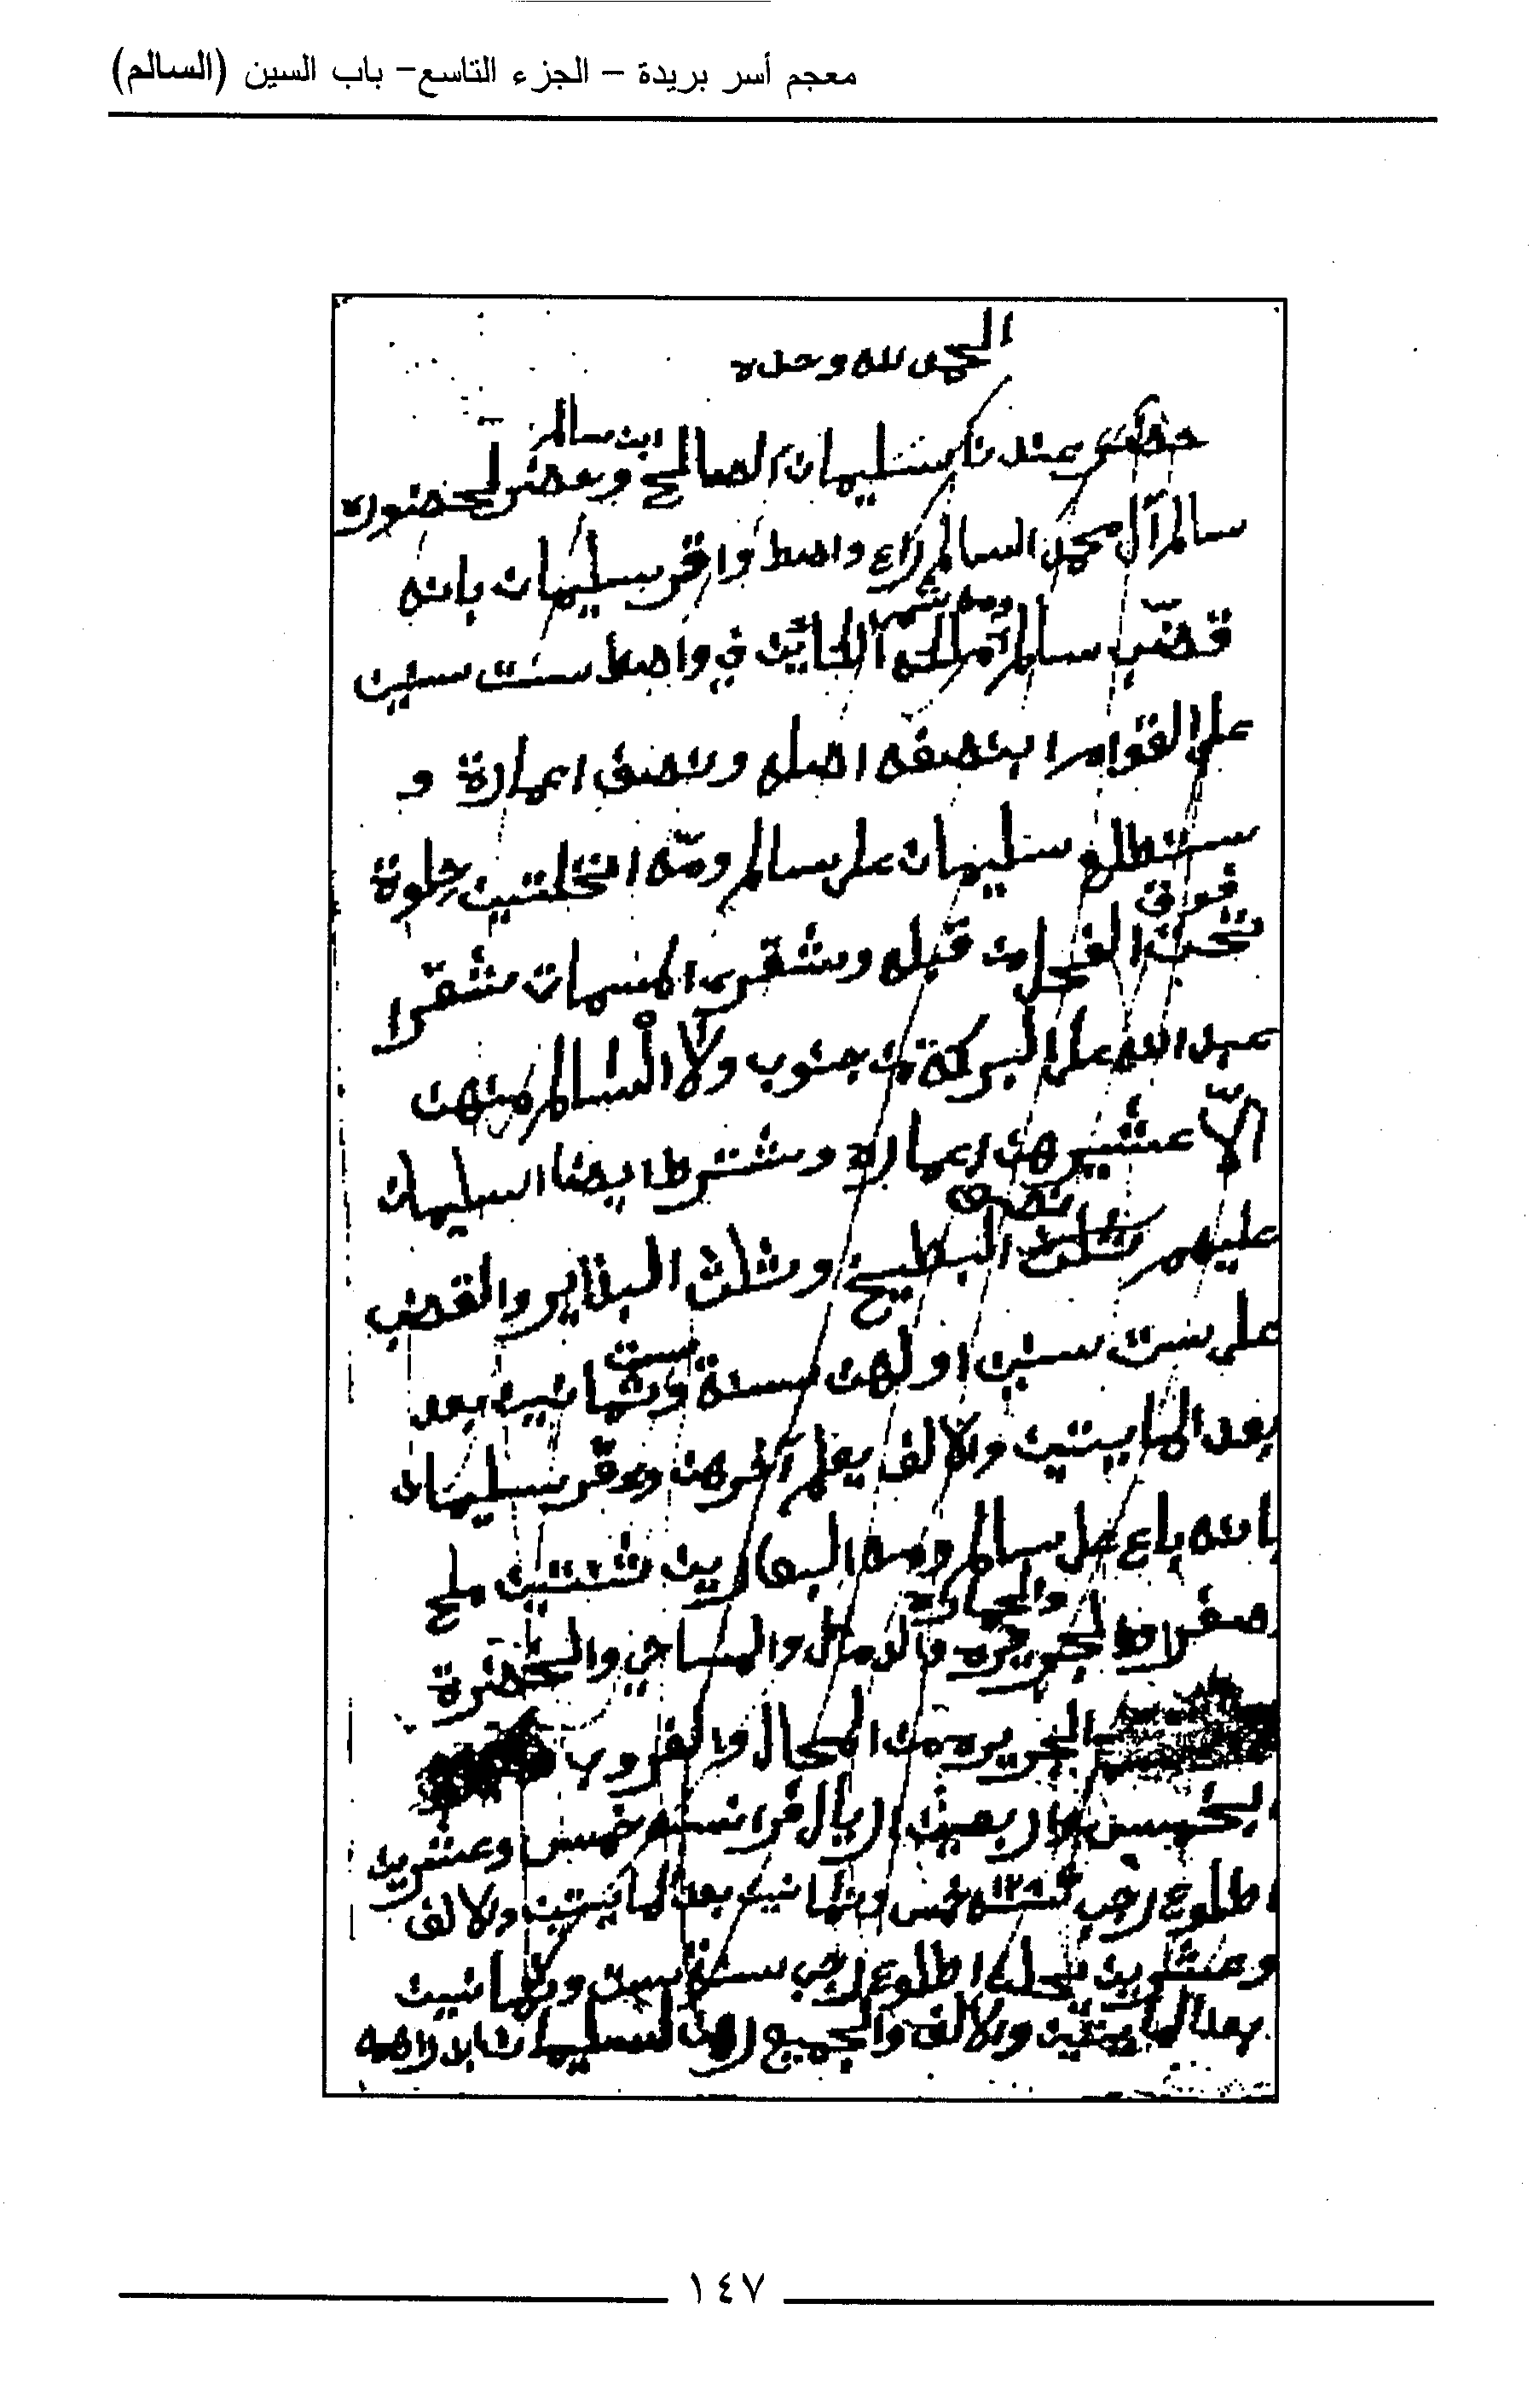 معجم أسر بريدة – الجزء التاسع– باب السين (السالم)
الحمد لله وحده
حضر عندنا سليمان الصالح ابن سالم وحضر لحضوره
سالم آل محمد السالم راع واصط واقر سليمان بانه
قضب سالم في واصط ست سنين
على القوامه ابنصفه اصله ونصف اعماره و
ستطلع سليمان على سالم ومه انخلتين حلوة
فوق
تحت الفحل من قبله وشقرى المنسمات شقرا
عبد الله على البركة من جنوب ولا السالم منهن
الا عشيرهن اعماره وشترط ايضا سليمان
عليهم ثلث البطيخ وثلث البقاير والقضب
على ست سنين اولهن سنة ست وثمانين بعد
بعد المايتين والالف يعلم آخرهن وقر سليمان
بانه باع على سالم ومه البعارين ثنتين ملح
صفر والحماره والمحال والمساحي والخضرة
من المحال والغروب
ابخمسن واربعين اريال فرانسه خمس وعشرين
اطلوع رجب خمس وثمانين بعد المايتين والالف
وعشرين يحلن اطلوع رجب سنة ست وثمانين
بعد المايتين والالف والجميع ارهن لسليمان ابدراهمه
١٤٧